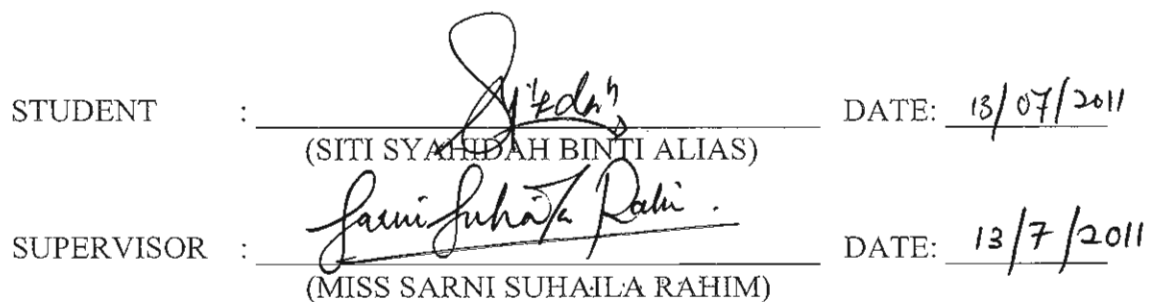 STUDENT : Syedah DATE: 13/07/2011
(SITI SYAHIDAH BINTI ALIAS)
SUPERVISOR : Sarni Suhaila Rahi. DATE: 13/7/2011
(MISS SARNI SUHAILA RAHIM)